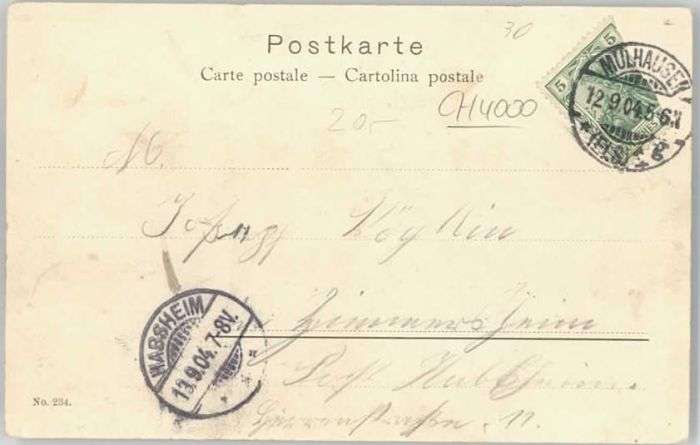 30
Postkarte
Carte postale — Cartolina postale
5
5
MÜLHAUSEN
12.9.04.5-6.N
* (ELS) *
20.-
CH4000
M.
Joseph
Zimmersheim
Post Habsheim
HABSHEIM
13.9.04.7-8V.
No. 234.